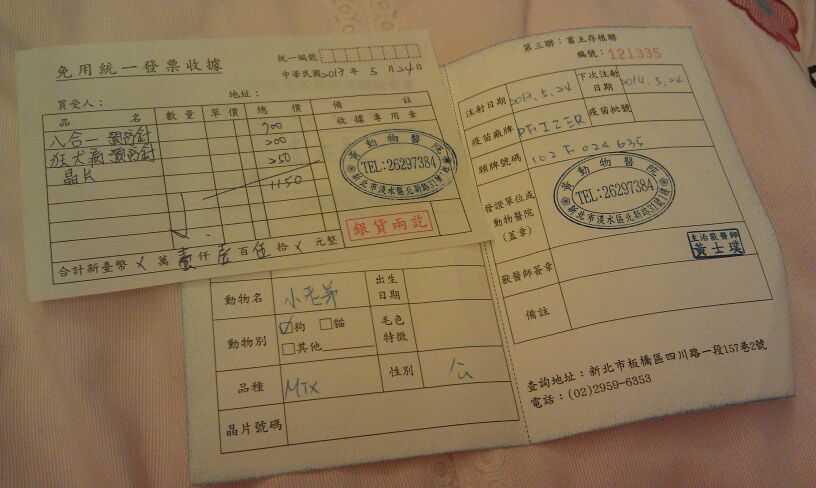 免用統一發票收據
統一編號
中華民國2013年5月24日
買受人：
地址：
品名 數量 單價 總價 備註
收據專用章
八合一預防針 700
狂犬病預防針 200
晶片 250
1150
黃動物醫院
TEL:26297384
銀貨兩訖
合計新臺幣 萬 壹仟 壹百 伍拾 元整
第三聯：畜主存根聯
編號：121335
注射日期 2013.5.24 下次注射日期 2014.5.24
疫苗廠牌 PFIZER 疫苗批號
頸牌號碼 102 F. 024635
發證單位或動物醫院(蓋章)
黃動物醫院
TEL:26297384
新北市淡水區北新路31號
獸醫師簽章
主治獸醫師
黃士璞
備註
動物名 小老弟 出生日期
動物別 狗 貓 其他 毛色特徵
品種 MIX 性別 公
晶片號碼
查詢地址：新北市板橋區四川路一段157巷2號
電話：(02)2959-6353